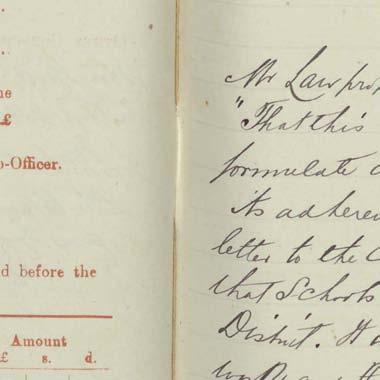 ne
£
o-Officer.
d before the
Amount
£ s. d.
Mr Law
"That this
formulate
its adheren
letter to the
that Schools
District.